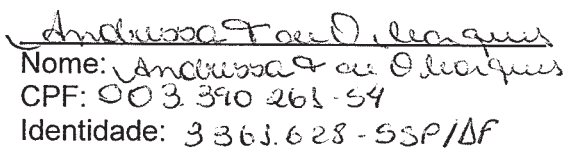 Andressa F de O. Marques
Nome: Andressa F de O Marques
CPF: 003 390 261-54
Identidade: 3361.628-SSP/DF